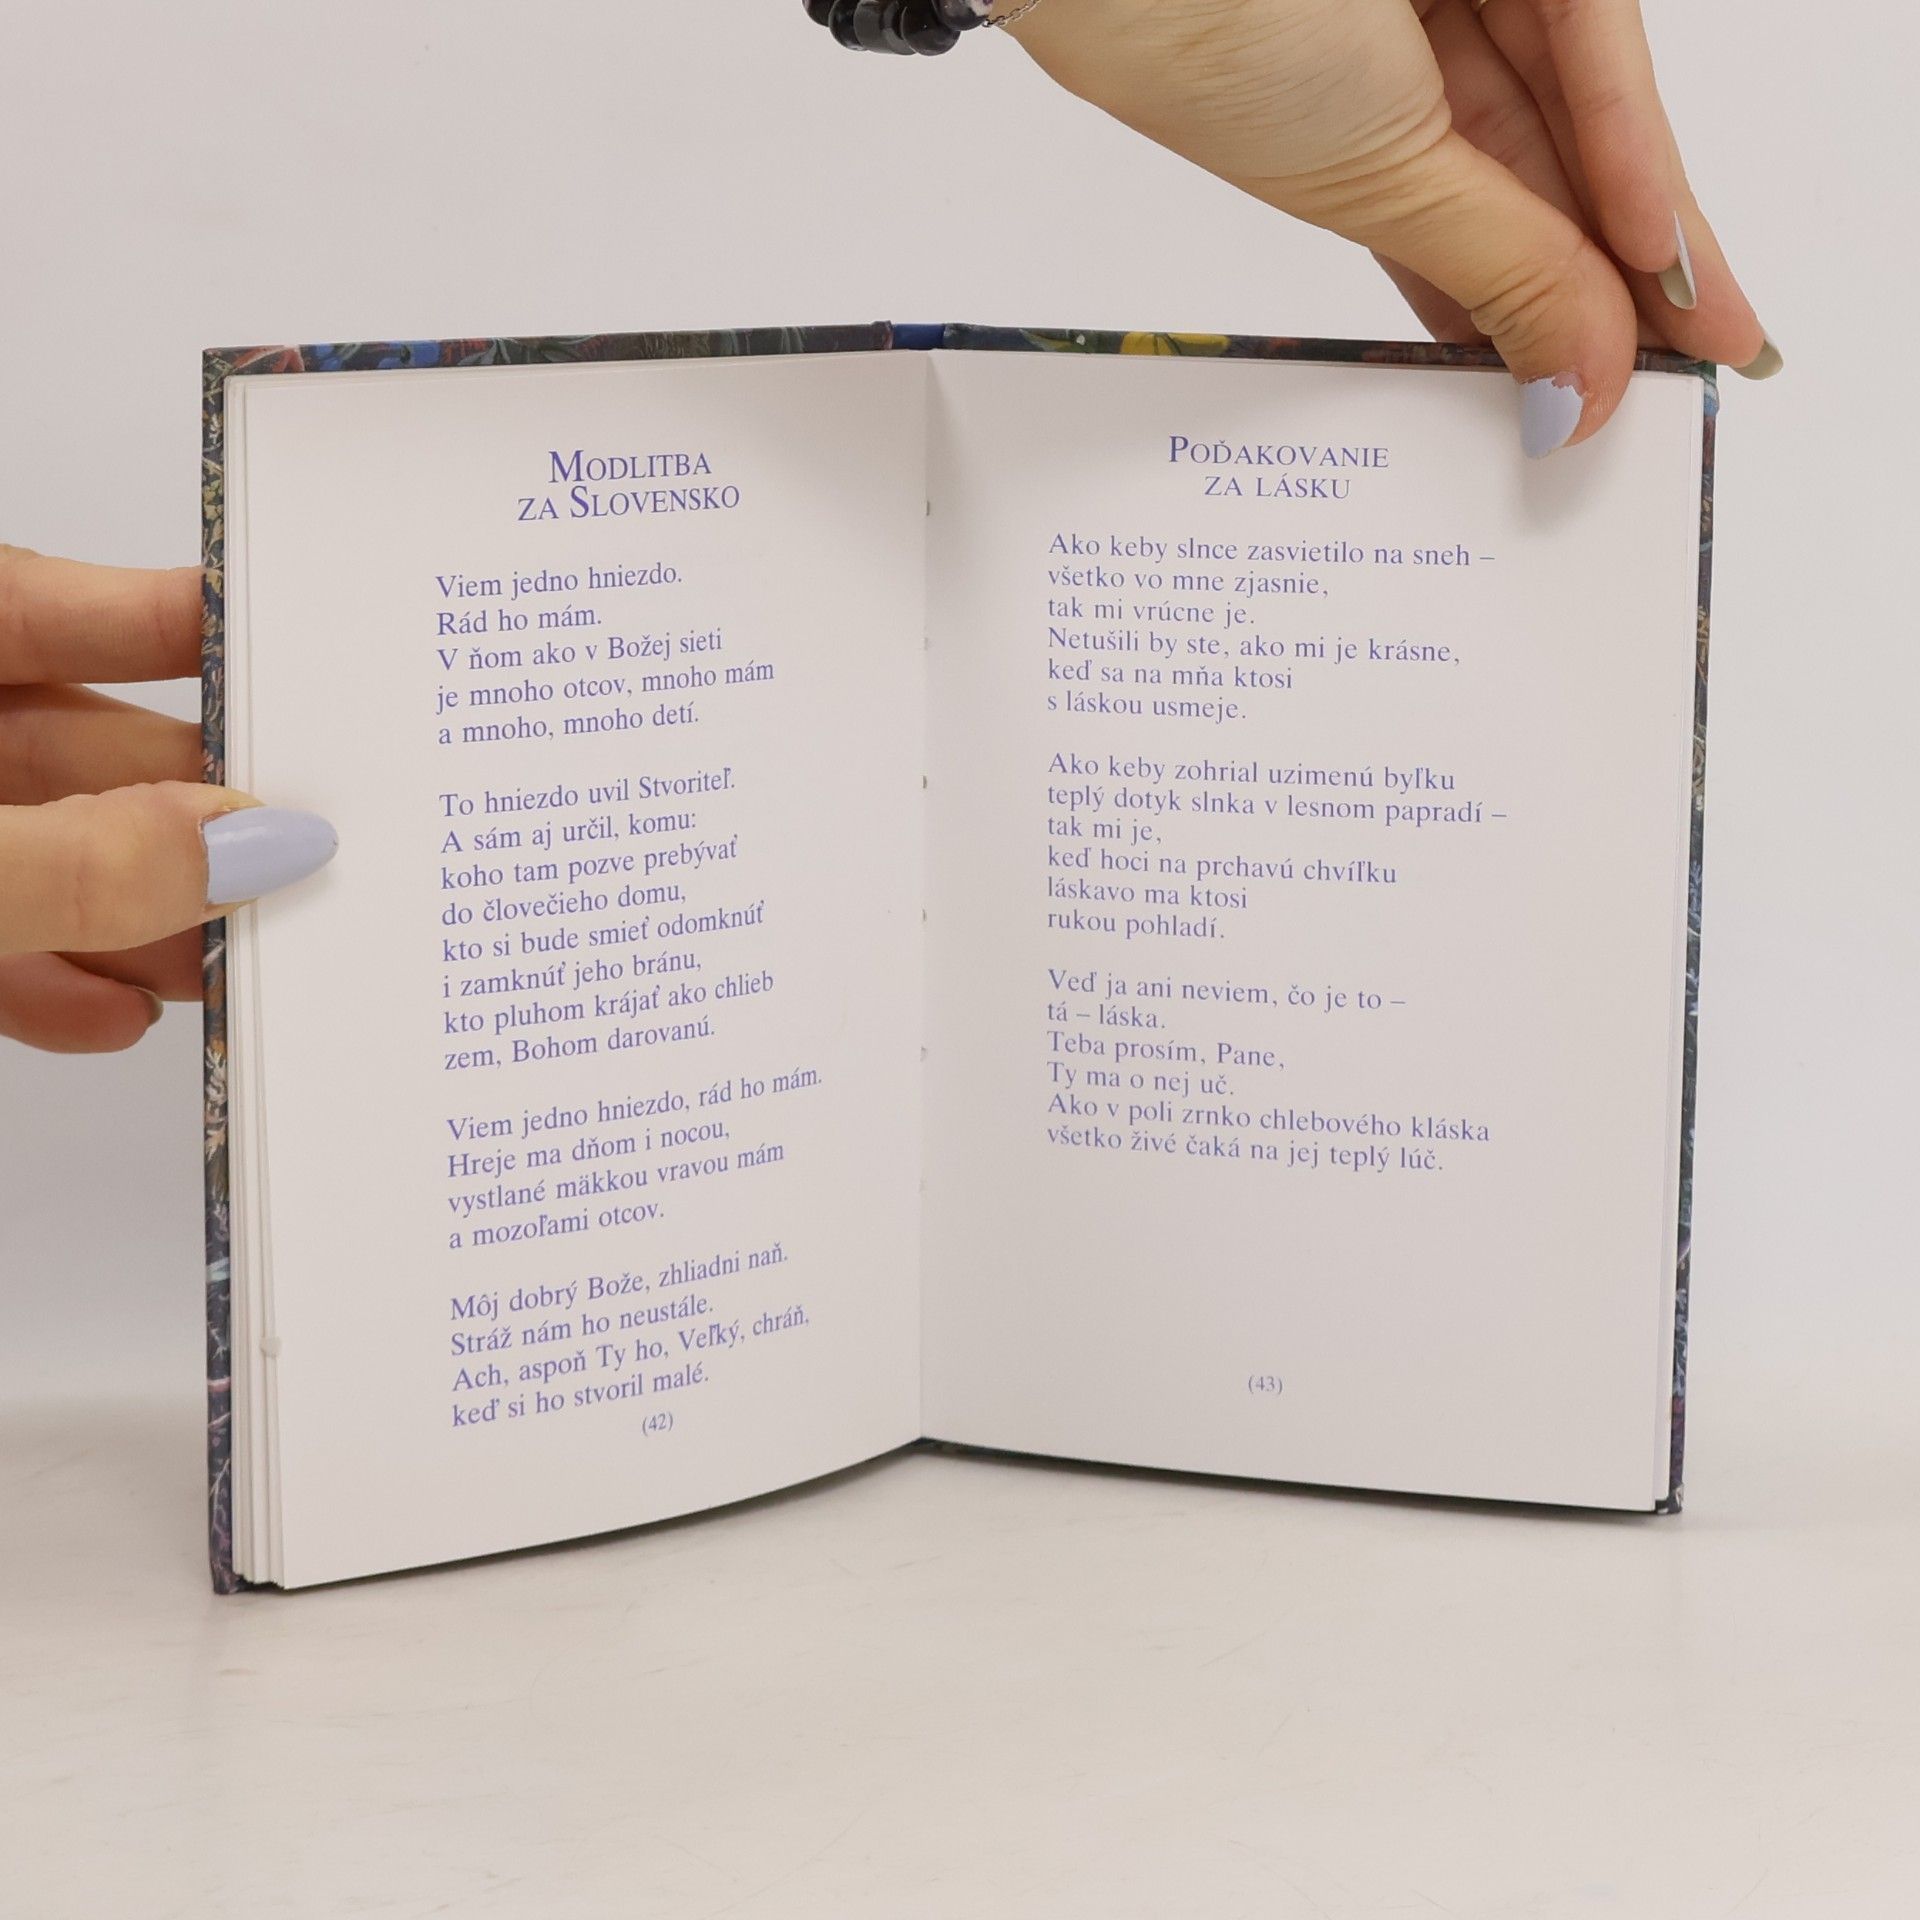 MODLITBA
ZA SLOVENSKO
Viem jedno hniezdo.
Rád ho mám.
V ňom ako v Božej sieti
je mnoho otcov, mnoho mám
a mnoho, mnoho detí.
To hniezdo uvil Stvoriteľ.
A sám aj určil, komu:
koho tam pozve prebývať
do človečieho domu,
kto si bude smieť odomknúť
i zamknúť jeho bránu,
kto pluhom krájať ako chlieb
zem, Bohom darovanú.
Viem jedno hniezdo, rád ho mám.
Hreje ma dňom i nocou,
vystlané mäkkou vravou mám
a mozoľami otcov.
Môj dobrý Bože, zhliadni naň.
Stráž nám ho neustále.
Ach, aspoň Ty ho, Veľký, chráň,
keď si ho stvoril malé.
(42)
POĎAKOVANIE
ZA LÁSKU
Ako keby slnce zasvietilo na sneh –
všetko vo mne zjasnie,
tak mi vrúcne je.
Netušili by ste, ako mi je krásne,
keď sa na mňa ktosi
s láskou usmeje.
Ako keby zohrial uzimenú byľku
teplý dotyk slnka v lesnom papradí –
tak mi je,
keď hoci na prchavú chvíľku
láskavo ma ktosi
rukou pohladí.
Veď ja ani neviem, čo je to –
tá – láska.
Teba prosím, Pane,
Ty ma o nej uč.
Ako v poli zrnko chlebového kláska
všetko živé čaká na jej teplý lúč.
(43)